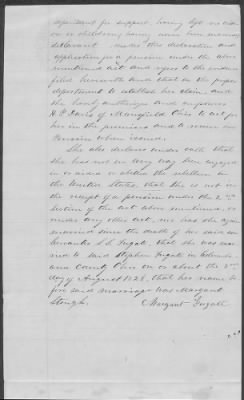 dependent for support, having left no widow
or or children, having never been married
declarant makes this declaration and
application for a pension under the above
mentioned act and refers to the evidence
filed herewith and that in the proper
department to establish her claim, and
she hereby authorizes and empowers
H. P. Davis of Mansfield Ohio to act for
her in the premises and to receive her
Pension when issued.
She also declares under oath that
she has not in any way been engaged
in or aided or abetted the rebellion in
the United States, that she is not in
the receipt of a pension under the 2nd
section of the act above mentioned, or
under any other act, nor has she again
married since the death of her said son
Servantes S. L. Fugate, that she was mar
ried to said Stephen Fugate in Columbi
ana County Ohio on or about the 3rd
day of August 1828, that her name be
fore said marriage was Margaret
Stough.
Margaret Fugate